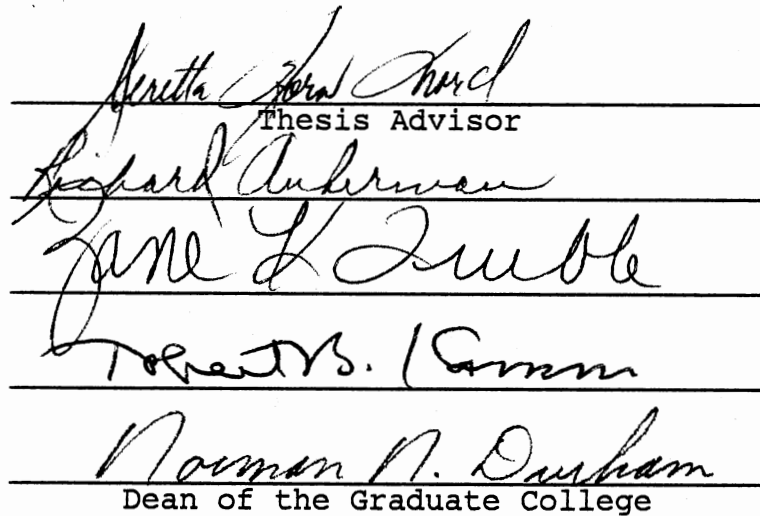 Thesis Advisor
Richard Anderman
Zane K Quible
Robert B. Kamm
Norman N. Durham
Dean of the Graduate College